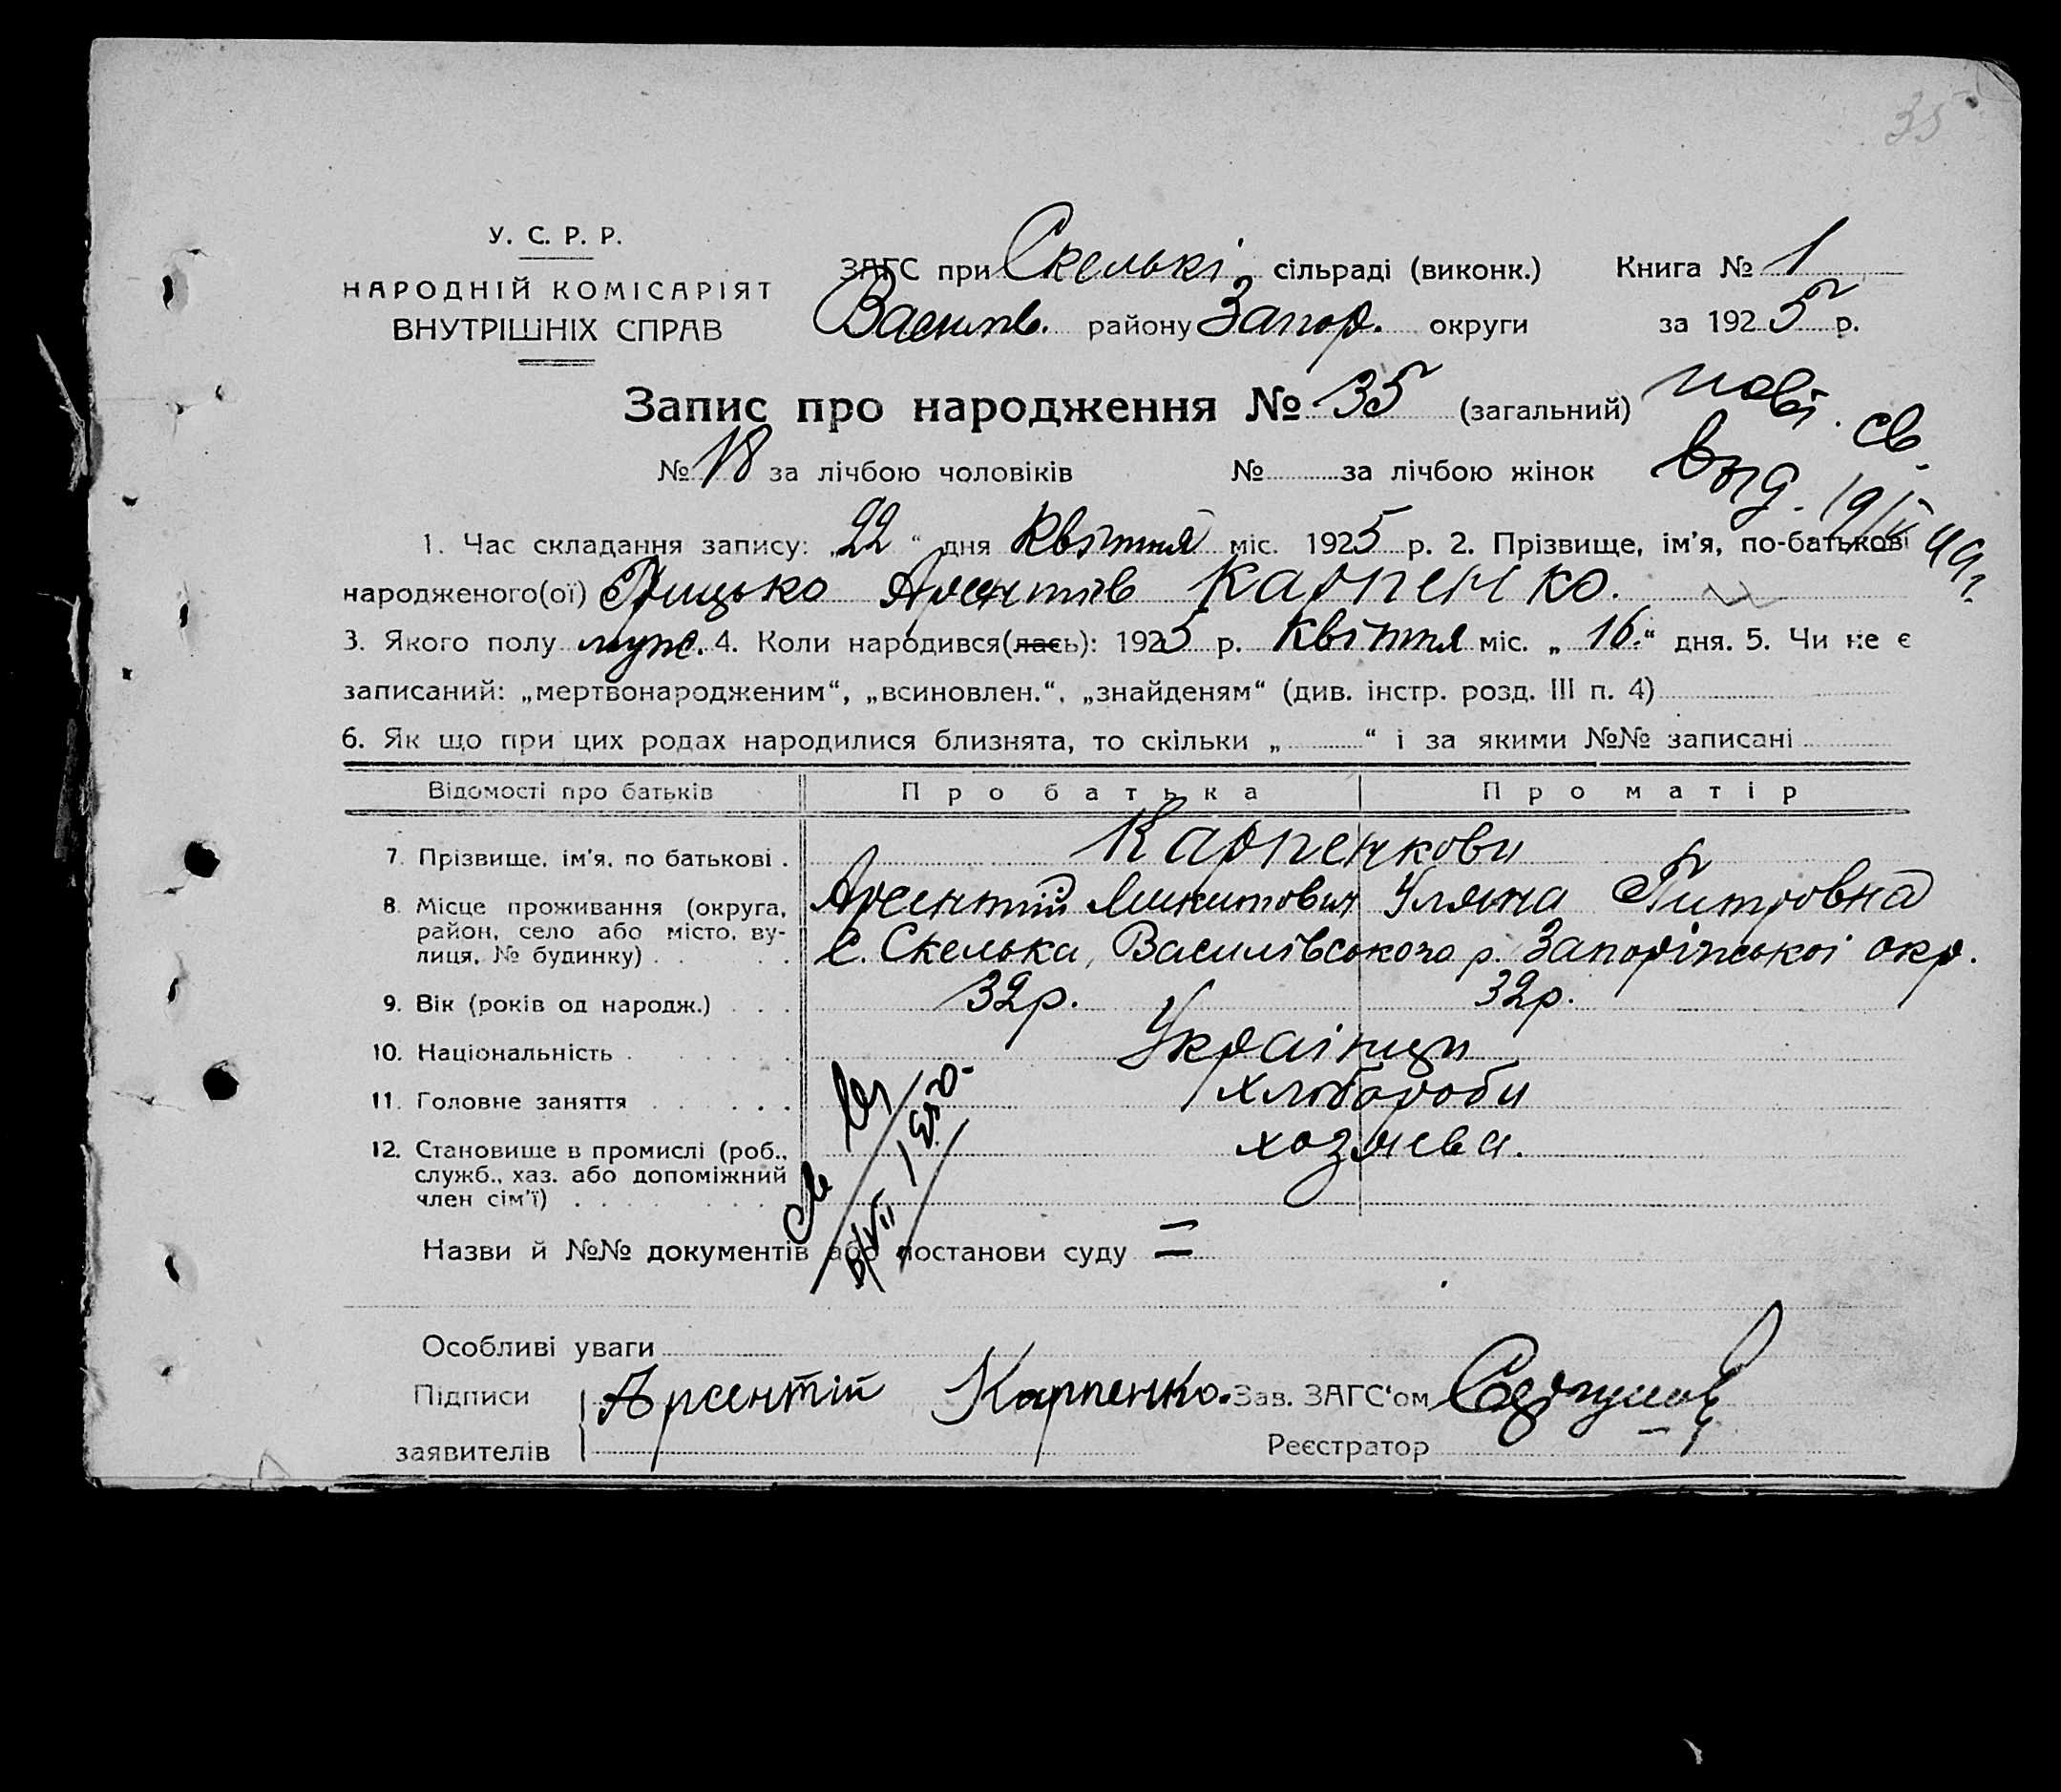 35
У. С. Р. Р.
НАРОДНІЙ КОМІСАРІЯТ
ВНУТРІШНІХ СПРАВ
ЗАГС при Скелькі сільраді (виконк.) Книга № 1
Василів. району Запор. округи за 1925 р.
Запис про народження № 35 (загальний)
пові. св.
№ 18 за лічбою чоловіків № за лічбою жінок
выд. 19/ 49г.
1. Час складання запису: „22“ дня Квітня міс. 1925 р. 2. Прізвище, ім'я, по-батькові
народженого(ої) Грицько Арентіїв Карпенко.
3. Якого полу муж. 4. Коли народився(лась): 1925 р. Квітня міс. „16.“ дня. 5. Чи не є
записаний: „мертвонародженим“, „всиновлен.“, „знайденям“ (див. інстр. розд. III п. 4)
6. Як що при цих родах народилися близнята, то скільки „ “ і за якими №№ записані
Відомості про батьків Про батька Про матір
7. Прізвище, ім'я, по батькові . Карпенкови
8. Місце проживання (округа, Арсентій Микитович Уляна Питровна
район, село або місто, ву- с. Скелька, Василівського р. Запоріжської окр.
лиця, № будинку) . . . .
9. Вік (років од народж.) . . . 32р. 32р.
10. Національність . . . . . Українци
11. Головне заняття . . . . . хлібороби
12. Становище в промислі (роб., хозяева.
служб., хаз. або допоміжний
член сім'ї) . . . . . .
Назви й №№ документів або постанови суду =
Особливі уваги
Підписи Арсентій Карпенко. Зав. ЗАГС'ом
заявителів Реєстратор